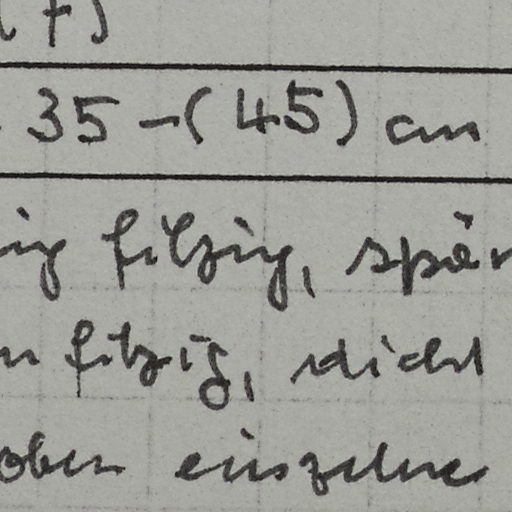 35-(45) cm
filzig, spär
filzig, dicht
oben einzelne